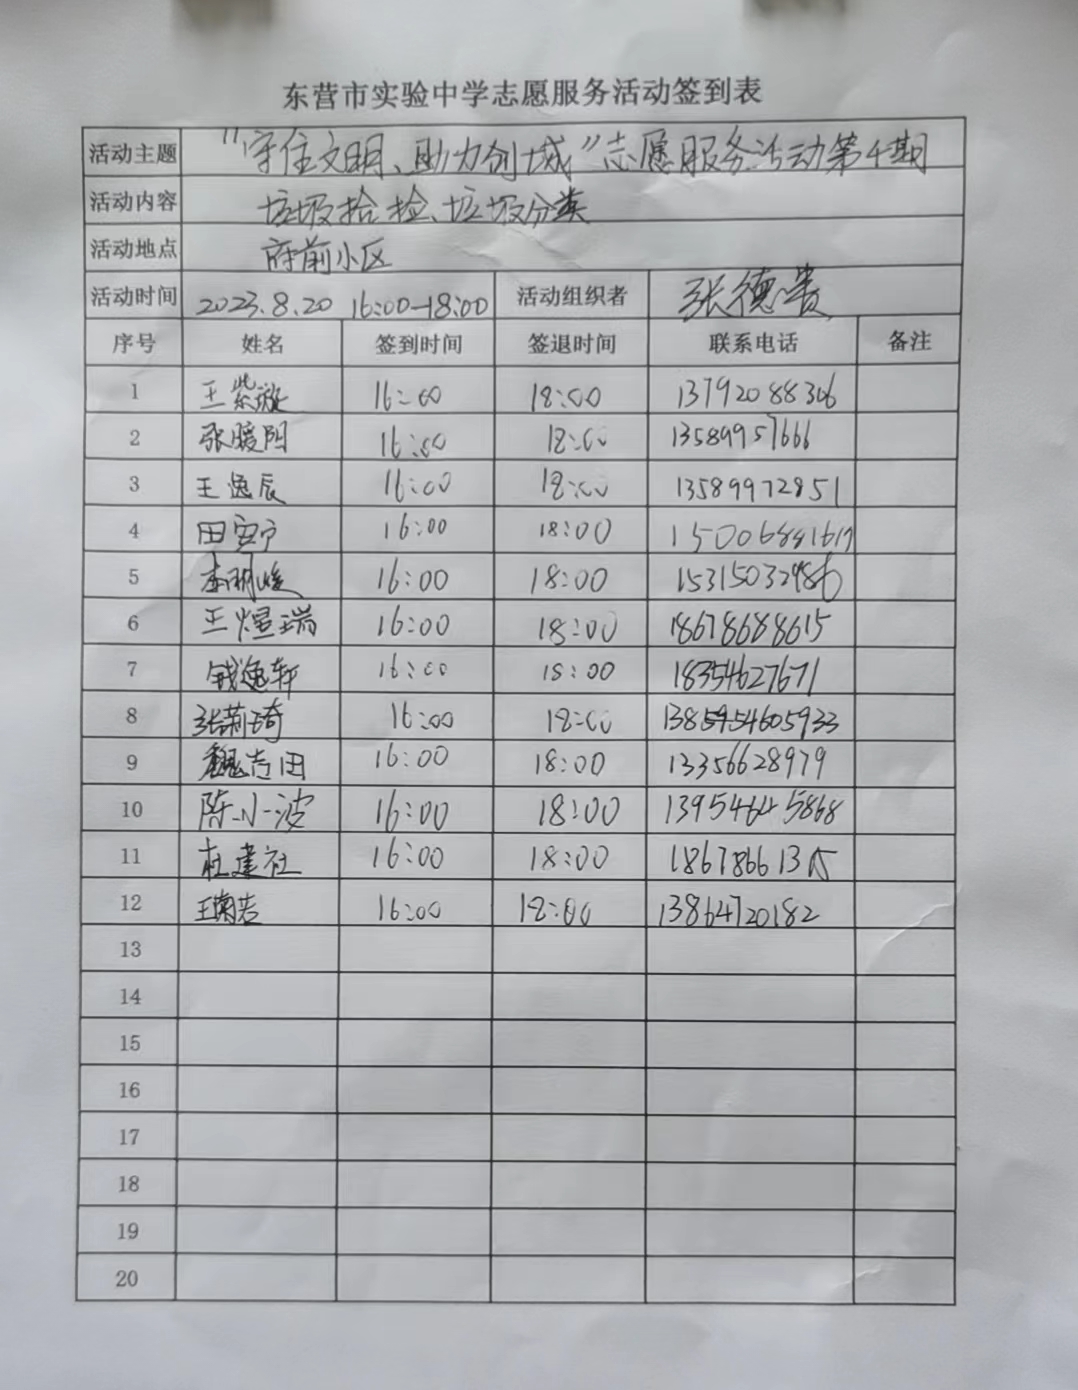 东营市实验中学志愿服务活动签到表
活动主题 "守住文明、助力创城"志愿服务活动第十期
活动内容 垃圾捡捡、垃圾分类
活动地点 府前小区
活动时间 2023.8.20 16:00-18:00 活动组织者 张德贵
序号 姓名 签到时间 签退时间 联系电话 备注
1 王紫漩 16:00 18:00 13792088306
2 张暖阳 16:00 18:00 13589957666
3 王逸辰 16:00 18:00 13589972851
4 田安宁 16:00 18:00
5 16:00 18:00
6 王煊瑞 16:00 18:00 18678688615
7 钱逸轩 16:00 18:00 18354627671
8 张莉琦 16:00 18:00
9 魏志田 16:00 18:00 13356628979
10 陈小波 16:00 18:00 13954645868
11 杜建社 16:00 18:00 18678661315
12 16:00 18:00 13864720182
13
14
15
16
17
18
19
20